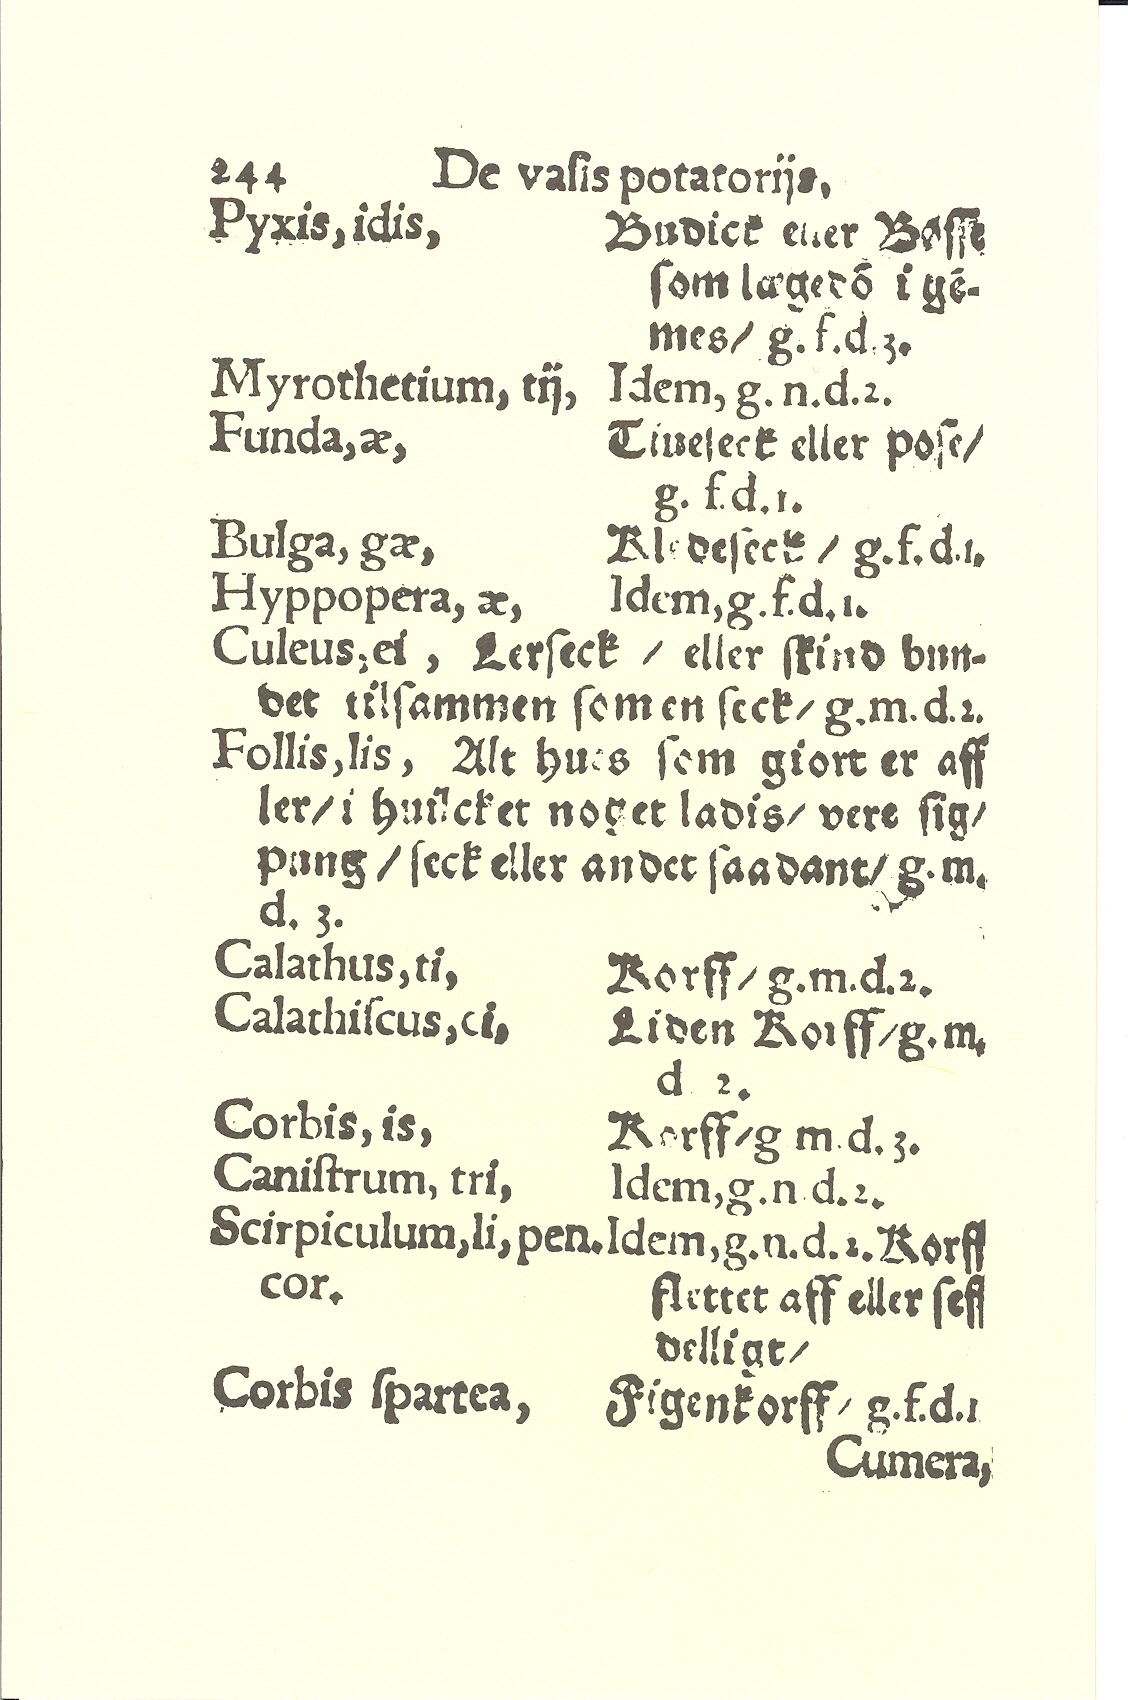 244 De vasis potatorijs,
Pyxis, idis, Budick eller Bøsse
som lægedõ i gẽ-
mes/ g. f. d. 3.
Myrothetium, tij, Idem, g. n. d. 2.
Funda, æ, Tiueseck eller pose/
g. f. d. 1.
Bulga, gæ, Kledeseck / g. f. d. 1.
Hyppopera, æ, Idem, g. f. d. 1.
Culeus, ei, Lerseck / eller skind bun-
det tilsammen som en seck/ g. m. d. 2.
Follis, lis, Alt hues som giort er aff
ler/ i huilcket noget ladis/ vere sig/
pung / seck eller andet saadant/ g. m.
d. 3.
Calathus, ti, Korff/ g. m. d. 2.
Calathiscus, ci, Liden Korff/ g. m.
d 2.
Corbis, is, Korff/ g m. d. 3.
Canistrum, tri, Idem, g. n d. 2.
Scirpiculum, li, pen. Idem, g. n. d. 2. Korff
cor. flettet aff eller seff
velligt/
Corbis spartea, Figenkorff/ g. f. d. 1
Cumera,